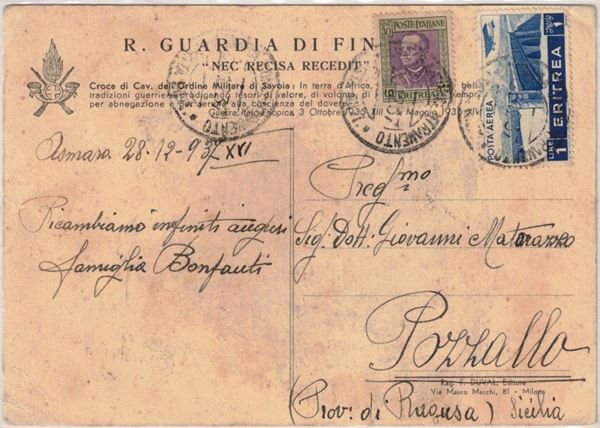 R. GUARDIA DI FIN
"NEC RECISA RECEDIT"
Croce di Cav. dell'Ordine Militare di Savoia: In terra d'Africa, bell
tradizioni guerriere prodigando tesori di valore, di volontà, di sempre
per abnegazione e per serena alta coscienza del dovere.
Guerra Italo Etiopica, 3 Ottobre 1935 XIII - 5 Maggio 1936 XIV
POSTE ITALIANE
30
ERITREA
POSTA AEREA
ERITREA
LIRE 1
1
Asmara 28-12-937 XVI
Ricambiamo infiniti auguri
famiglia Bonfanti
Preg.mo
Sig. Dott. Giovanni Matarazzo
Pozzallo
Reg. F. DUVAL, Editore
Via Mauro Macchi, 81 - Milano
(Prov: di Ragusa) Sicilia